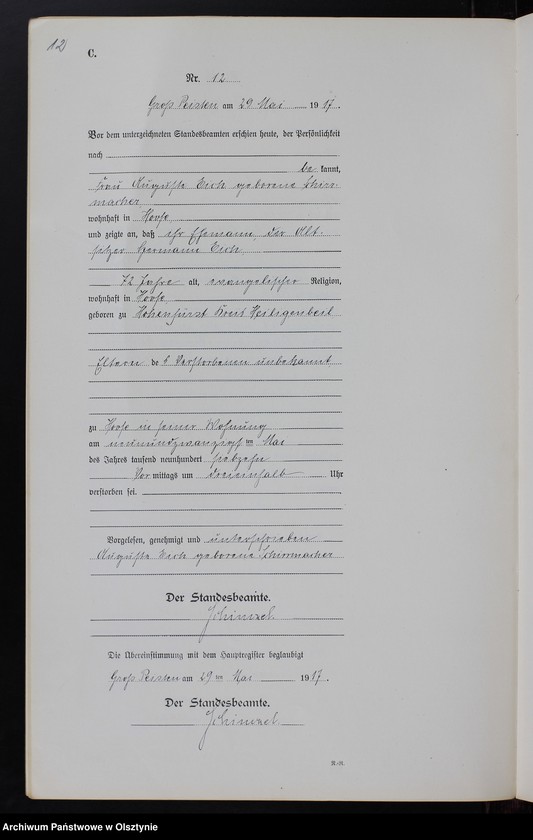 12
C.
Nr. 12
Groß Peisten am 29 Mai 1917.
Vor dem unterzeichneten Standesbeamten erschien heute, der Persönlichkeit
nach
be kannt,
Frau Auguste Eich geborene Schirr-
macher,
wohnhaft in Hoofe,
und zeigte an, daß ihr Ehemann, der Alt-
sitzer Hermann Eich,
72 Jahre alt, evangelischer Religion,
wohnhaft in Hoofe
geboren zu Hohenfürst Kreis Heiligenbeil
Eltern de s Verstorbenen unbekannt
zu Hoofe in seiner Wohnung
am neunundzwanzigsten Mai
des Jahres tausend neunhundert siebzehn
Vor mittags um dreieinhalb Uhr
verstorben sei.
Vorgelesen, genehmigt und unterschrieben
Auguste Eich geborene Schirrmacher
Der Standesbeamte.
Schimzel.
Die Übereinstimmung mit dem Hauptregister beglaubigt
Groß Peisten am 29 ten Mai 1917.
Der Standesbeamte.
Schimzel.
Archiwum Państwowe w Olsztynie